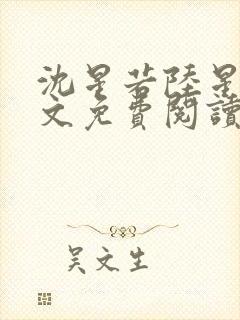 沈星若陸星
文免費閱讀
吴文生